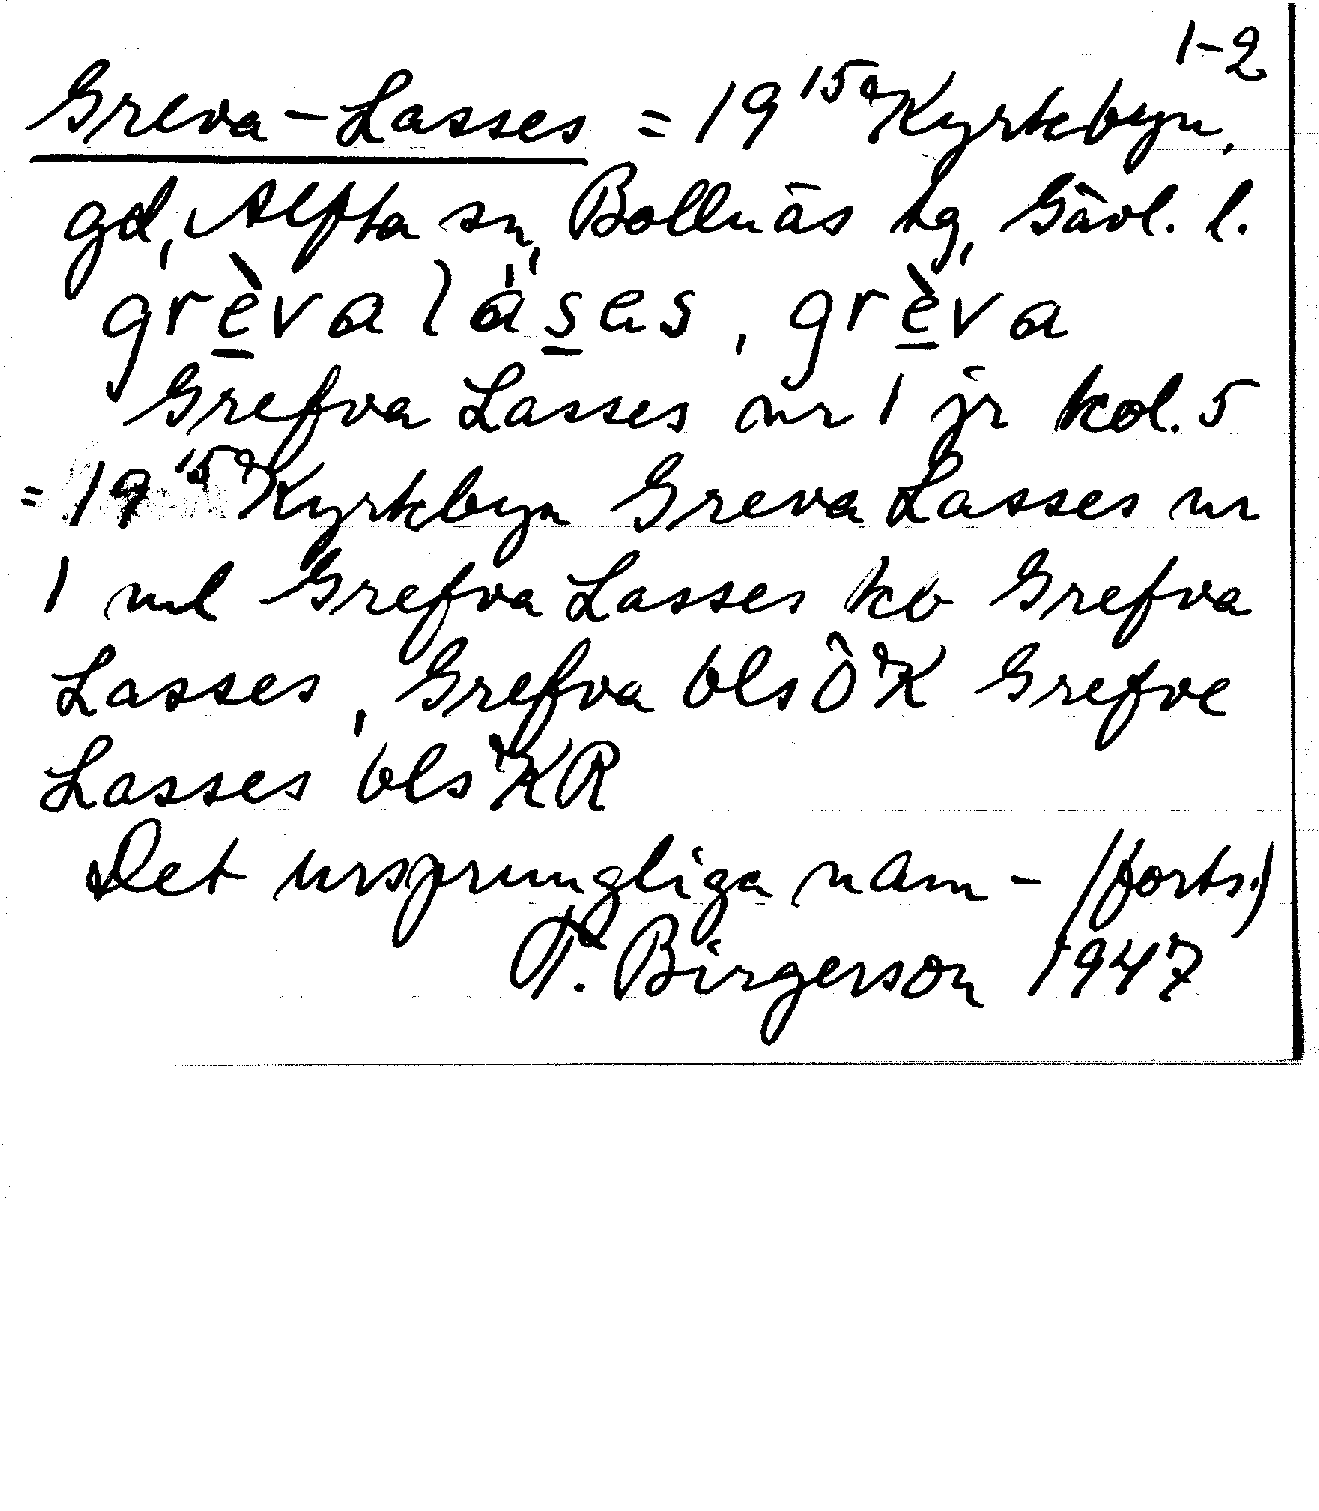 1-2
Greva-Lasses = 19 15a Kyrkbyn,
gd, Alfta sn, Bollnäs tg, Gävl. l.
grèva láses, grèva
Grefva Lasses nr 1 jr kol. 5
= 19 15a Kyrkbyn Greva Lasses nr
1 ml Grefva Lasses kb Grefva
Lasses, Grefva bls ÖK Grefve
Lasses bls KR
Det ursprungliga nam- (forts.)
T. Birgerson 1947